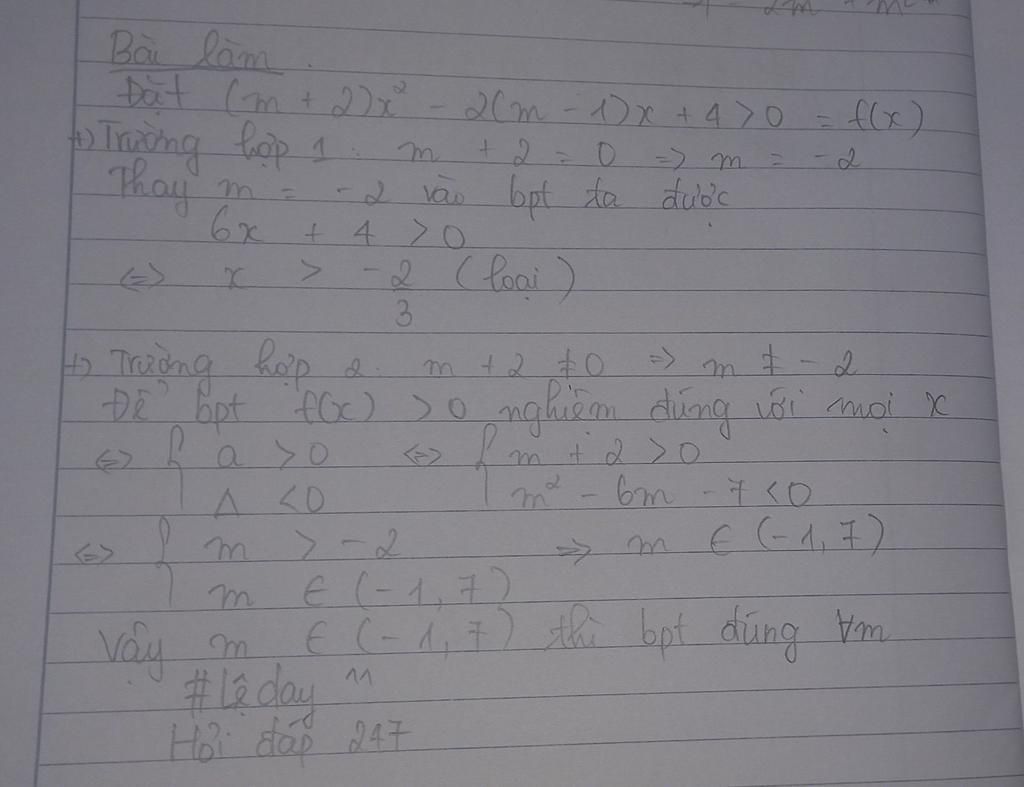 Bài làm.
Đặt (m + 2)x² - 2(m - 1)x + 4 > 0 = f(x)
+) Trường hợp 1: m + 2 = 0 => m = -2
Thay m = -2 vào bpt ta được
6x + 4 > 0
<=> x > -2/3 (loại)
+) Trường hợp 2: m + 2 ≠ 0 => m ≠ -2
Để bpt f(x) > 0 nghiệm đúng với mọi x
<=> { a > 0 <=> { m + 2 > 0
Δ < 0 m² - 6m - 7 < 0
<=> { m > -2 => m ∈ (-1, 7)
m ∈ (-1, 7)
Vậy m ∈ (-1, 7) thì bpt đúng ∀m
#Lệ day ^^
Hỏi đáp 247